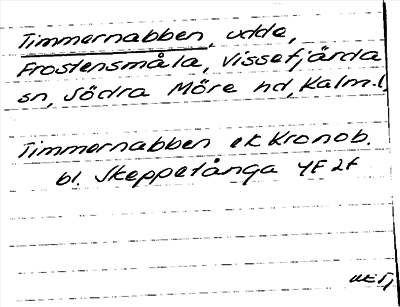 Timmernabben, udde,
Frostensmåla, Vissefjärda
sn, Södra Möre hd, Kalm.l.
Timmernabben ek Kronob.
bl. Skeppetånga 4F2f